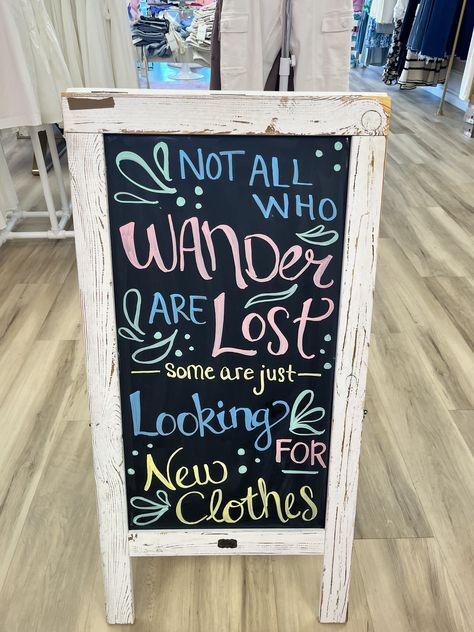 NOT ALL
WHO
WANDER
ARE LOST
— some are just —
Looking
FOR
New
Clothes